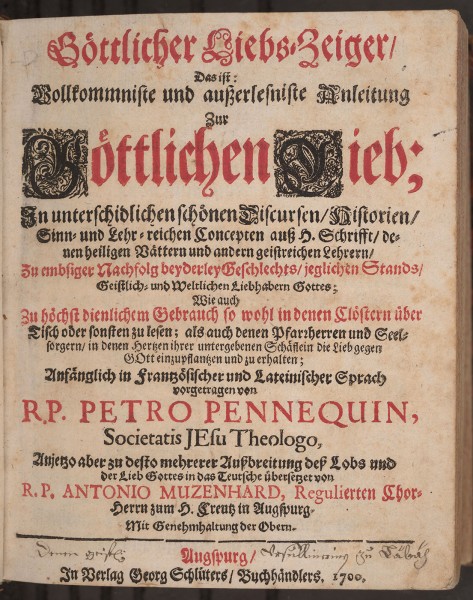 Göttlicher Liebs-Zeiger/
Das ist:
Vollkommniste und außerlesniste Anleitung
Zur
Göttlichen Lieb;
In unterschidlichen schönen Discursen/Historien/
Sinn- und Lehr-reichen Concepten auß H. Schrifft/de-
nen heiligen Vättern und andern geistreichen Lehrern/
Zu embsiger Nachfolg beyderley Geschlechts/jeglichen Stands/
Geistlich- und Weltlichen Liebhabern Gottes;
Wie auch
Zu höchst dienlichem Gebrauch so wohl in denen Clöstern über
Tisch oder sonsten zu lesen; als auch denen Pfarzherren und Seel-
sorgern/in denen Hertzen ihrer untergebenen Schäflein die Lieb gegen
GOtt einzupflantzen und zu erhalten;
Anfänglich in Frantzösischer und Lateinischer Sprach
vorgetragen von
R.P. PETRO PENNEQUIN,
Societatis JEsu Theologo,
Anjetzo aber zu desto mehrerer Außbreitung deß Lobs und
der Lieb Gottes in das Teutsche übersetzet von
R. P. ANTONIO MUZENHARD, Regulierten Chor-
Herrn zum H. Creutz in Augspurg.
Mit Genehmhaltung der Obern.
Augspurg/
zu
In Verlag Georg Schlüters/Buchhändlers, 1700.